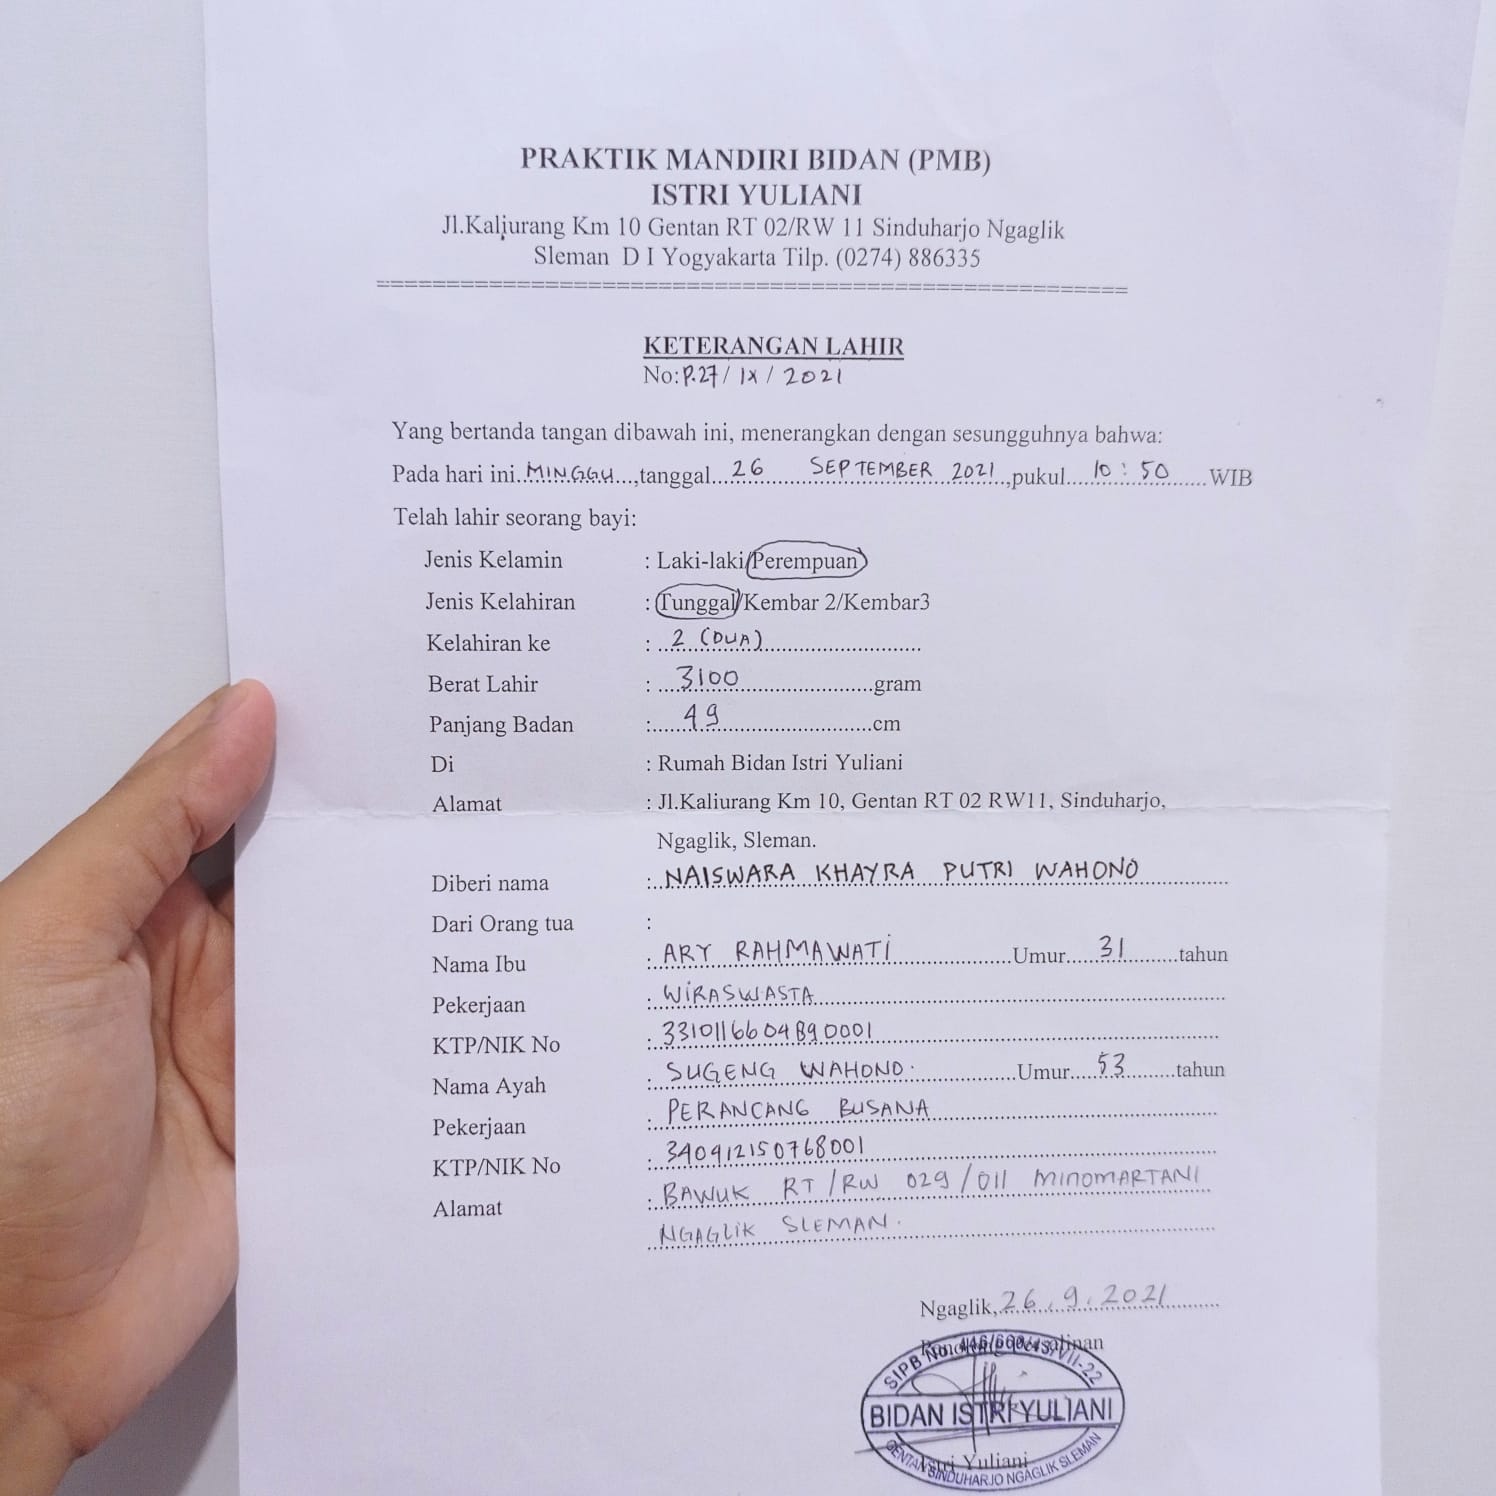 PRAKTIK MANDIRI BIDAN (PMB)
ISTRI YULIANI
Jl.Kaliurang Km 10 Gentan RT 02/RW 11 Sinduharjo Ngaglik
Sleman D I Yogyakarta Tilp. (0274) 886335
KETERANGAN LAHIR
No: P.27 / IX / 2021
Yang bertanda tangan dibawah ini, menerangkan dengan sesungguhnya bahwa:
Pada hari ini..MINGGU...,tanggal...26 SEPTEMBER 2021.,pukul....10:50......WIB
Telah lahir seorang bayi:
Jenis Kelamin : Laki-laki/Perempuan
Jenis Kelahiran : Tunggal/Kembar 2/Kembar3
Kelahiran ke : 2 (DUA)
Berat Lahir : 3100 gram
Panjang Badan : 49 cm
Di : Rumah Bidan Istri Yuliani
Alamat : Jl.Kaliurang Km 10, Gentan RT 02 RW11, Sinduharjo,
Ngaglik, Sleman.
Diberi nama : NAISWARA KHAYRA PUTRI WAHONO
Dari Orang tua :
Nama Ibu : ARY RAHMAWATI Umur 31 tahun
Pekerjaan : WIRASWASTA
KTP/NIK No : 3310116604890001
Nama Ayah : SUGENG WAHONO. Umur 53 tahun
Pekerjaan : PERANCANG BUSANA
KTP/NIK No : 340912150768001
Alamat : BAWUK RT/RW 029/011 MINOMARTANI
NGAGLIK SLEMAN.
Ngaglik, 26.9.2021
SIPB No.
BIDAN ISTRI YULIANI
Istri Yuliani
GENTAN SINDUHARJO NGAGLIK SLEMAN